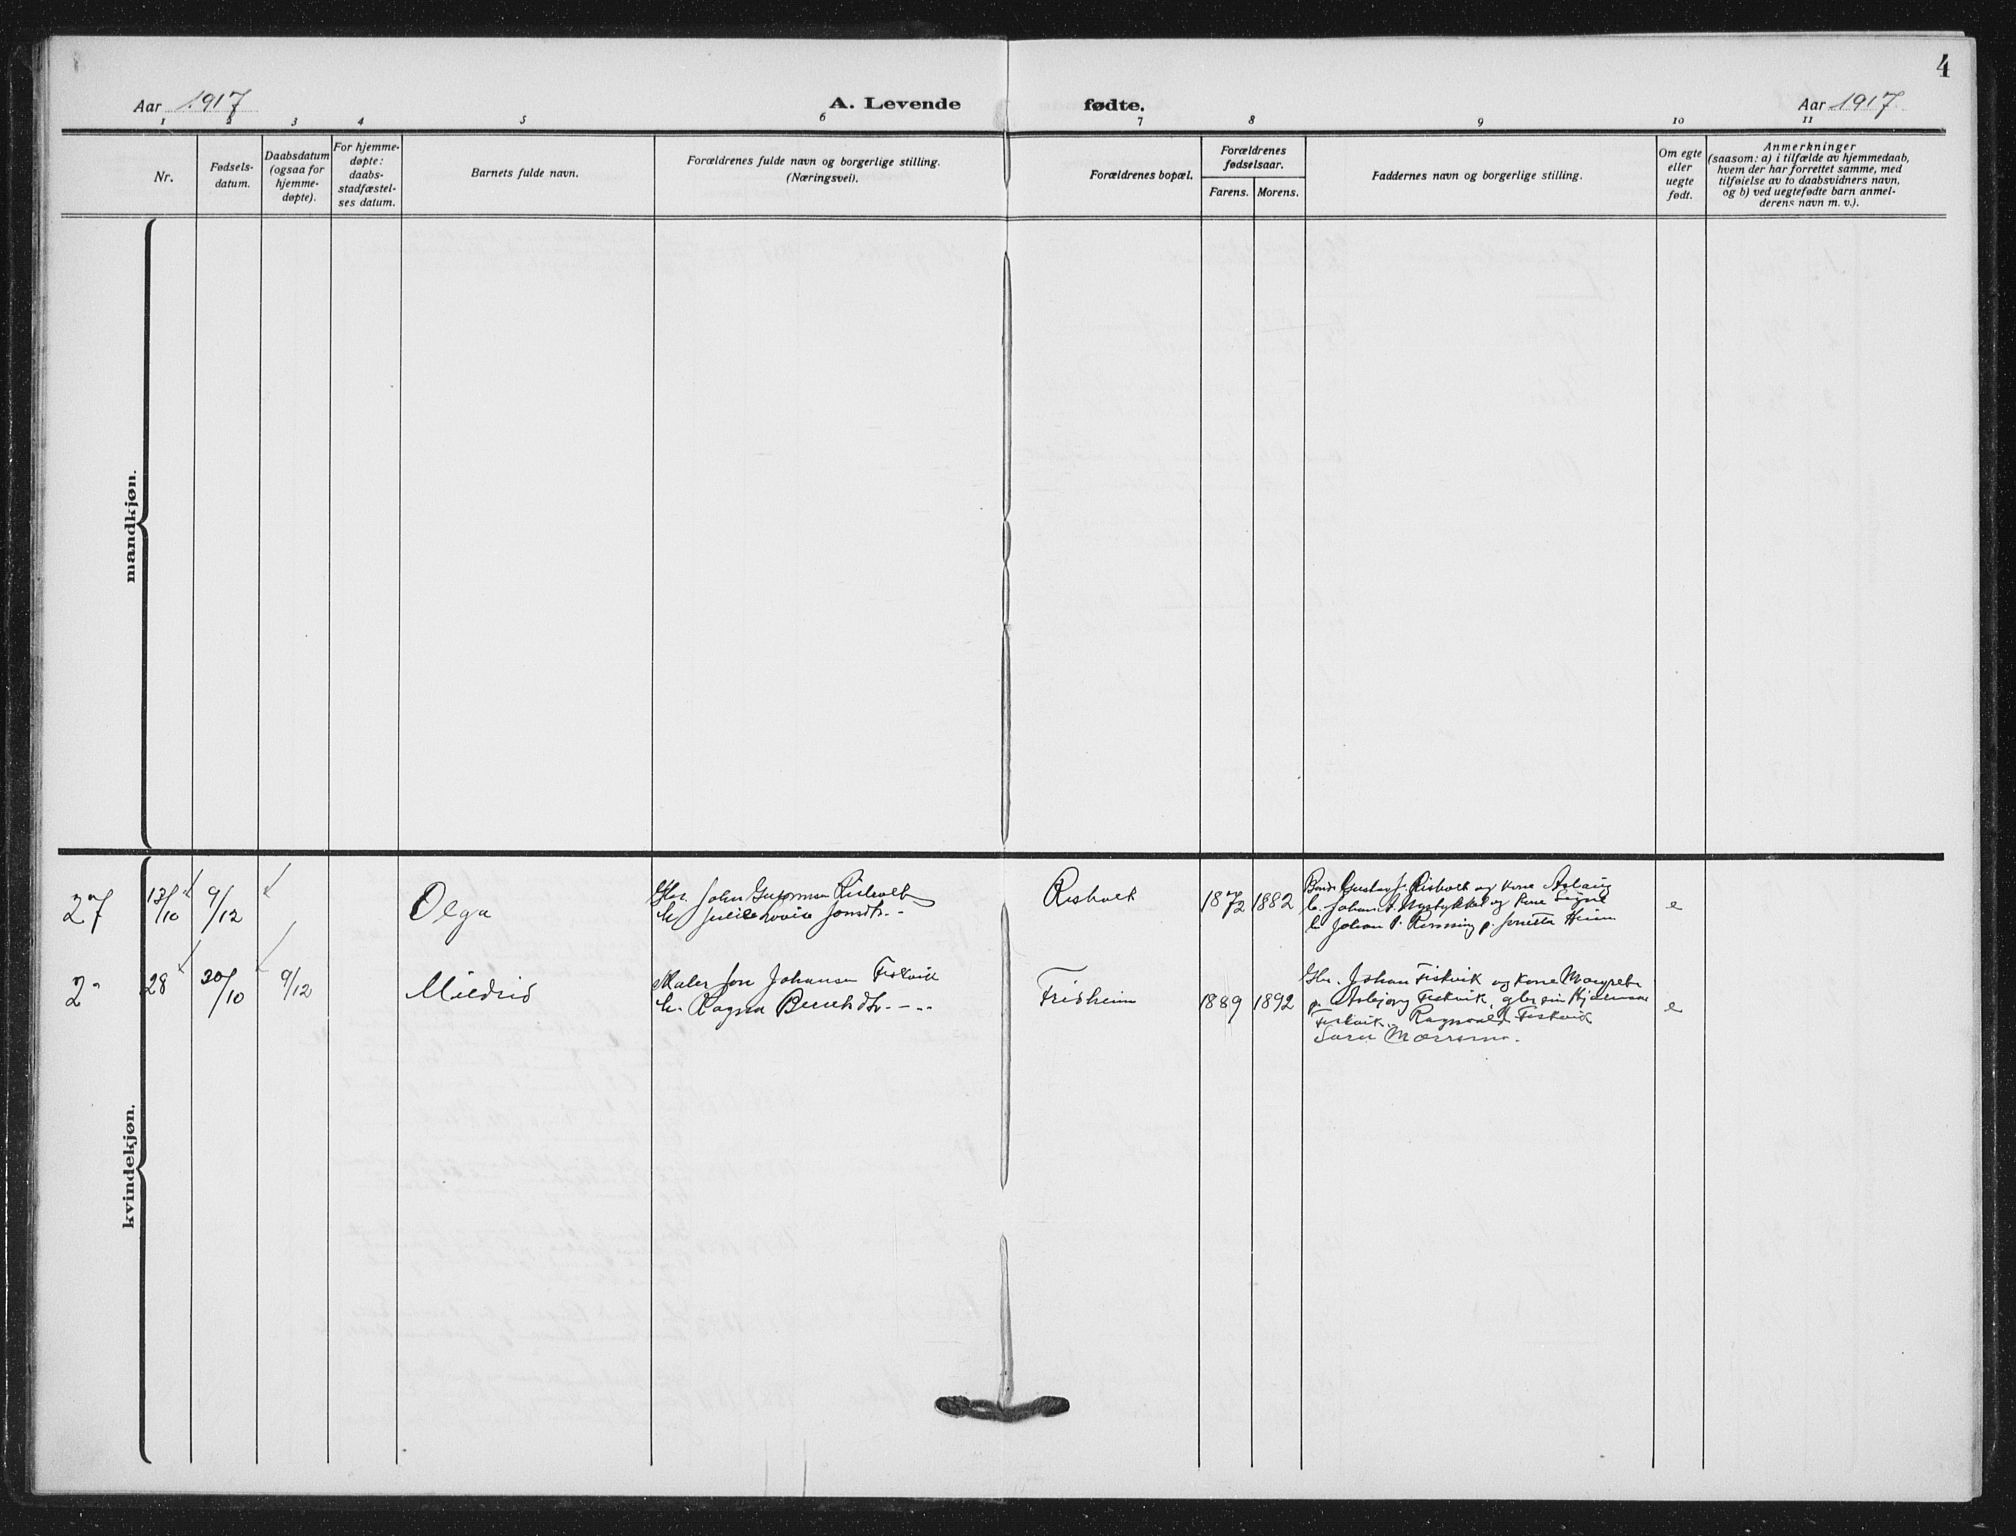 4
Aar 1917
A. Levende fødte.
Aar 1917
1 2 3 4 5 6 7 8 9 10 11
Nr.
Fødsels-
datum.
Daabsdatum
(ogsaa for
hjemme-
døpte).
For hjemme-
døpte:
daabs-
stadfæstel-
ses datum.
Barnets fulde navn.
Forældrenes fulde navn og borgerlige stilling.
(Næringsvei).
Forældrenes bopæl.
Forældrenes
fødselsaar.
Farens. Morens.
Faddernes navn og borgerlige stilling.
Om egte
eller
uegte
født.
Anmerkninger
(saasom: a) i tilfælde av hjemmedaab,
hvem der har forrettet samme, med
tilføielse av to daabsvidners navn,
og b) ved uegtefødte barn anmel-
derens navn m. v.).
mandkjøn.
kvindekjøn.
27 13/10 9/12
Olga
John Risholt
Risholt
1872 1882
Gustav J. Risholt og kone Aslaug
Johan A. Nystykket og kone Signe
Johan J. Rønning p. Heim
e
28 20/10 9/12
Mildrid
Maler Jon Johansen Fiskvik
k. Ragna
Fridheim
1889 1892
Gbr. Johan Fiskvik og kone Margrete
p. Asbjørg Fiskvik,
Fiskvik, Ragnvald Fiskvik
e